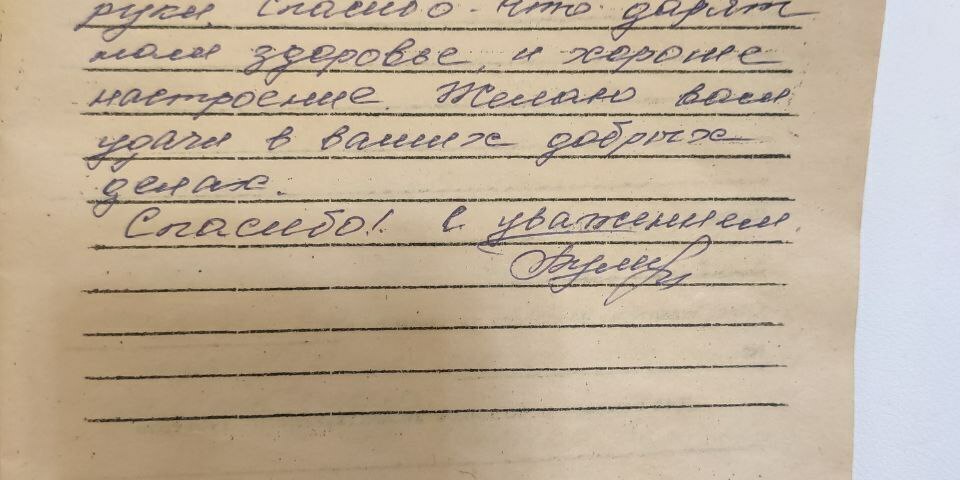 руки. Спасибо что дарят
нам здоровье, и хороше
настроение. Желаю вам
удачи в ваших добрых
делах.
Спасибо! С уважением.